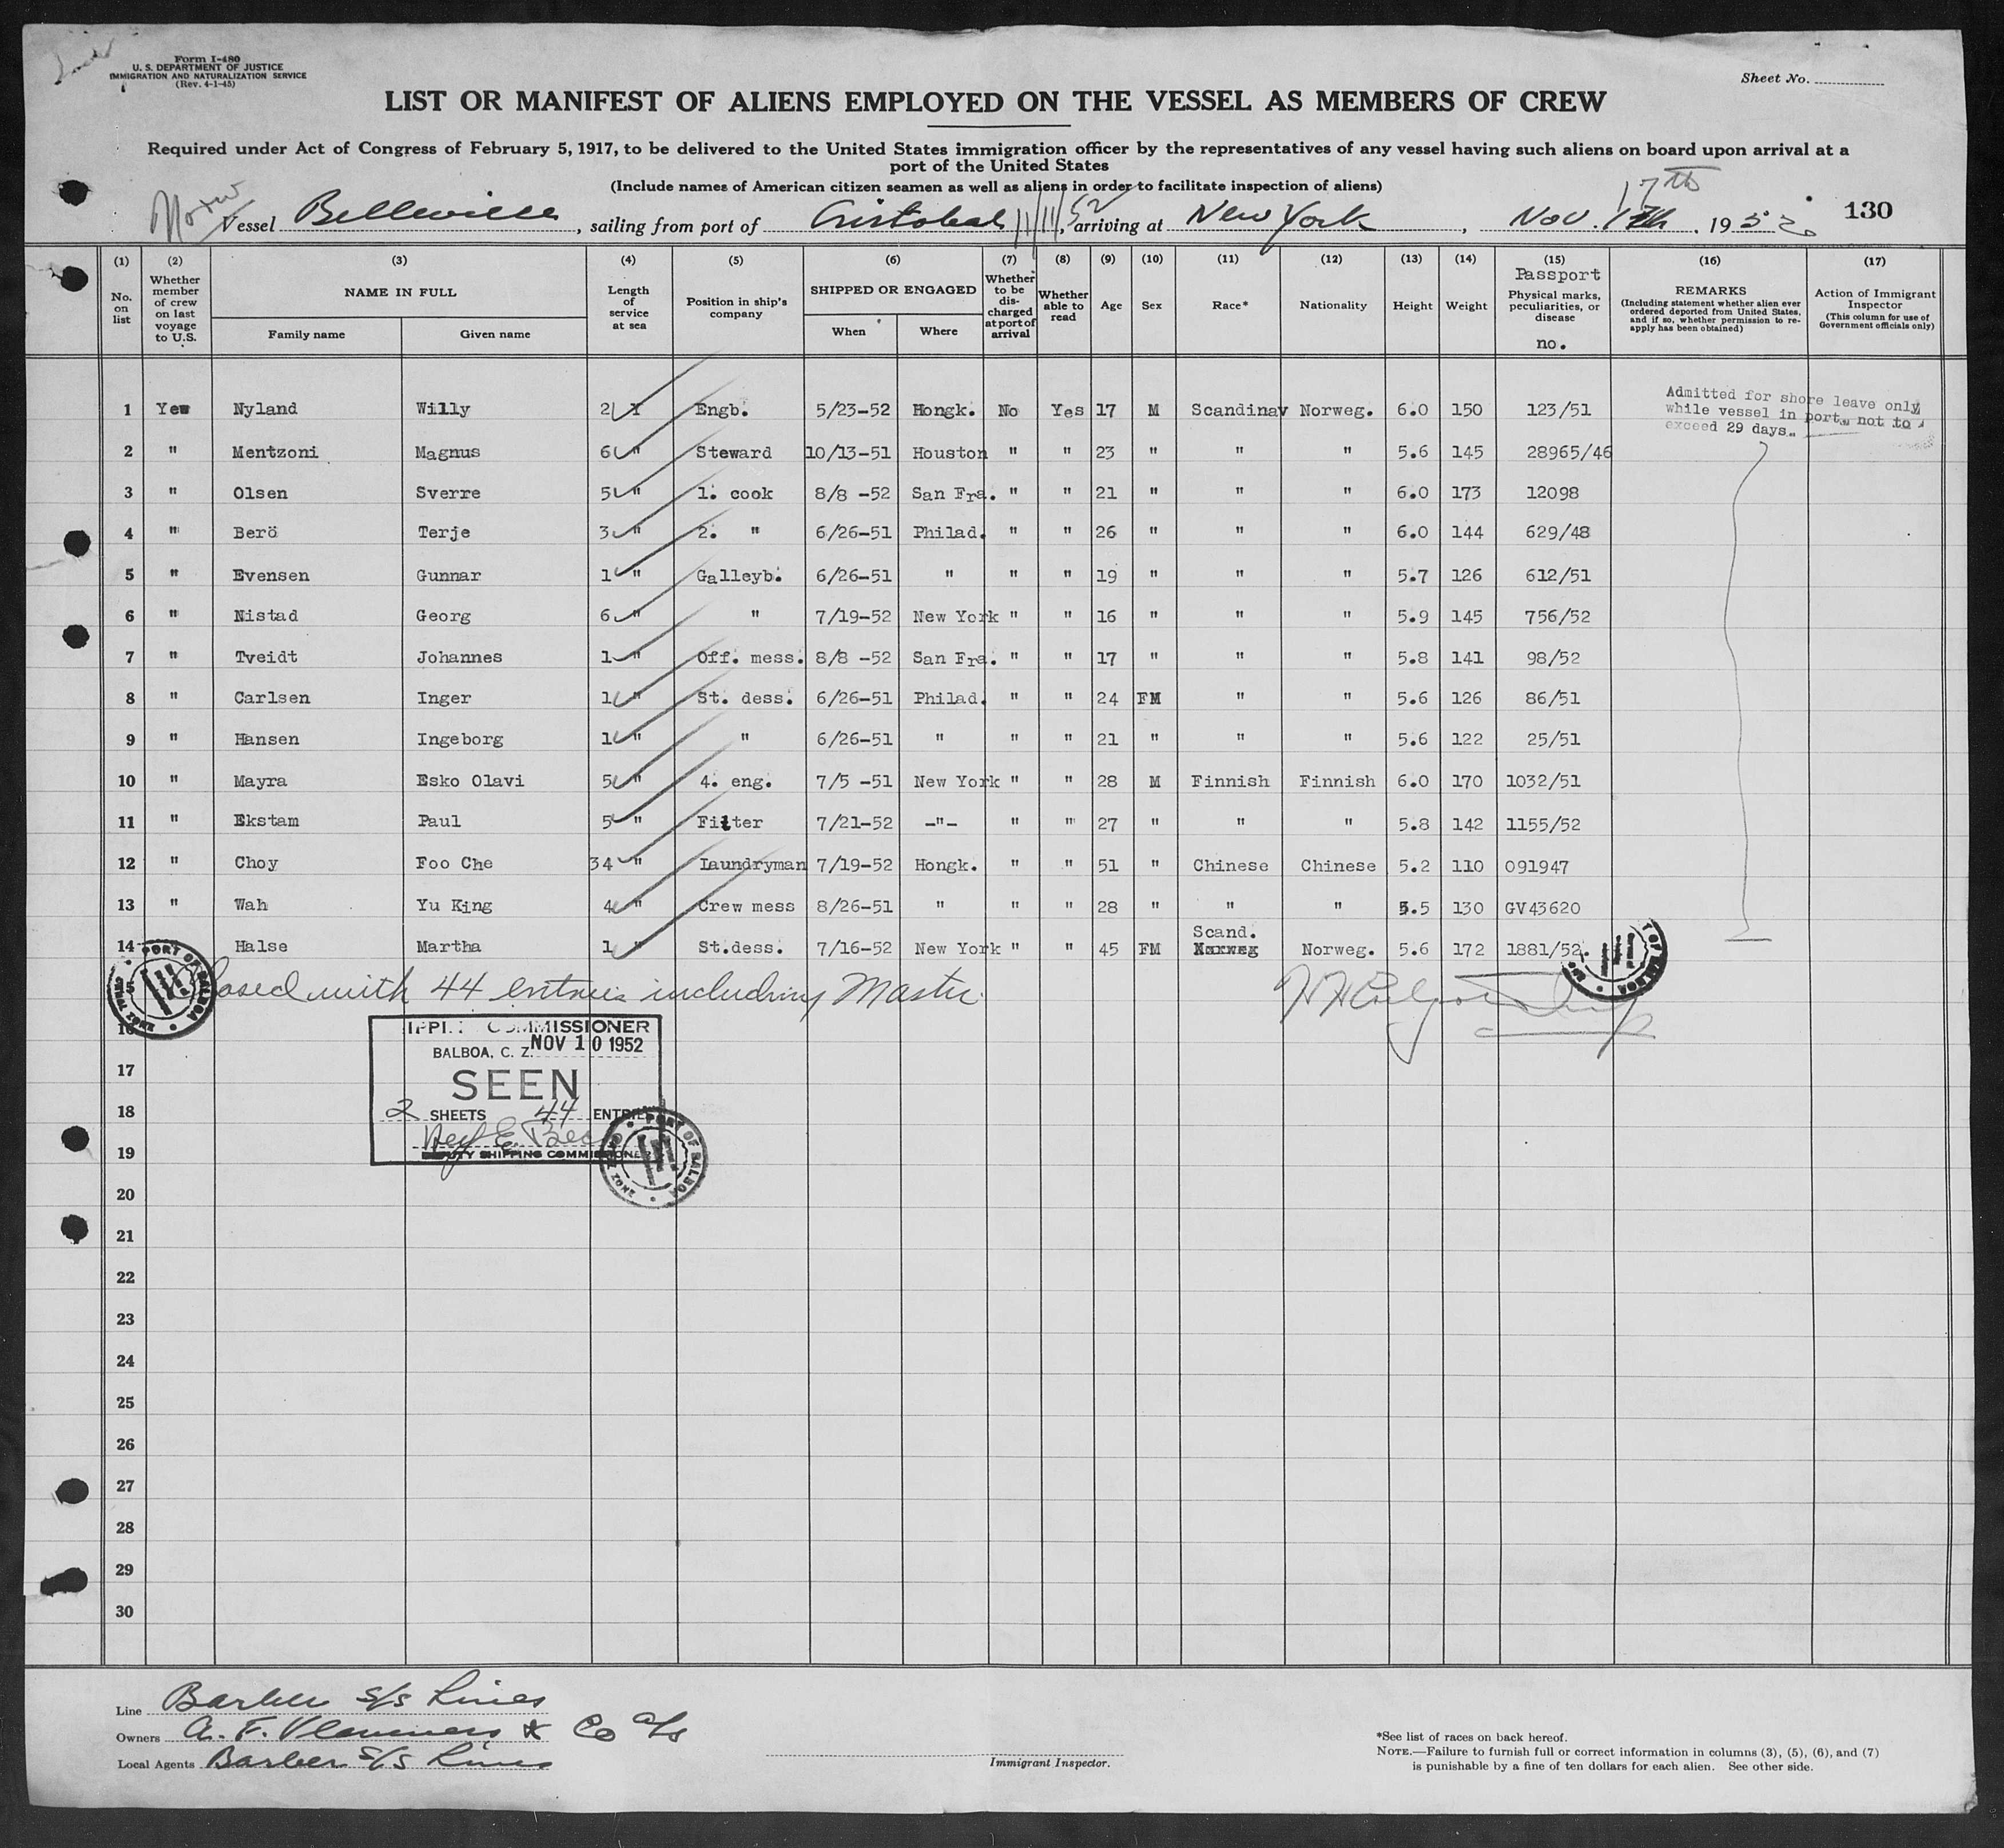 Form I-480
U. S. DEPARTMENT OF JUSTICE
IMMIGRATION AND NATURALIZATION SERVICE
(Rev. 4-1-45)
Sheet No.
LIST OR MANIFEST OF ALIENS EMPLOYED ON THE VESSEL AS MEMBERS OF CREW
Required under Act of Congress of February 5, 1917, to be delivered to the United States immigration officer by the representatives of any vessel having such aliens on board upon arrival at a
port of the United States
(Include names of American citizen seamen as well as aliens in order to facilitate inspection of aliens)
17th
Vessel Belleville, sailing from port of Cristobal 11/11/52, arriving at New York, Nov. 1952 130
(1) (2) (3) (4) (5) (6) (7) (8) (9) (10) (11) (12) (13) (14) (15) (16) (17)
No. on list Whether member of crew on last voyage to U.S. NAME IN FULL Family name Given name Length of service at sea Position in ship's company SHIPPED OR ENGAGED When Where Whether to be discharged at port of arrival Whether able to read Age Sex Race* Nationality Height Weight Passport Physical marks, peculiarities, or disease no. REMARKS (Including statement whether alien ever ordered deported from United States, and if so, whether permission to re-apply has been obtained) Action of Immigrant Inspector (This column for use of Government officials only)
Admitted for shore leave only
while vessel in port, not to
exceed 29 days.
1 Yes Nyland Willy 2 Y Engb. 5/23-52 Hongk. No Yes 17 M Scandinav Norweg. 6.0 150 123/51
2 " Mentzoni Magnus 6 " Steward 10/13-51 Houston " " 23 " " " 5.6 145 28965/46
3 " Olsen Sverre 5 " 1. cook 8/8 -52 San Fra. " " 21 " " " 6.0 173 12098
4 " Berö Terje 3 " 2. " 6/26-51 Philad. " " 26 " " " 6.0 144 629/48
5 " Evensen Gunnar 1 " Galleyb. 6/26-51 " " " 19 " " " 5.7 126 612/51
6 " Nistad Georg 6 " " 7/19-52 New York " " 16 " " " 5.9 145 756/52
7 " Tveidt Johannes 1 " Off. mess. 8/8 -52 San Fra. " " 17 " " " 5.8 141 98/52
8 " Carlsen Inger 1 " St. dess. 6/26-51 Philad. " " 24 FM " " 5.6 126 86/51
9 " Hansen Ingeborg 1 " " 6/26-51 " " " 21 " " " 5.6 122 25/51
10 " Mayra Esko Olavi 5 " 4. eng. 7/5 -51 New York " " 28 M Finnish Finnish 6.0 170 1032/51
11 " Ekstam Paul 5 " Fitter 7/21-52 -"- " " 27 " " " 5.8 142 1155/52
12 " Choy Foo Che 34 " Laundryman 7/19-52 Hongk. " " 51 " Chinese Chinese 5.2 110 091947
13 " Wah Yu King 4 " Crew mess 8/26-51 " " " 28 " " " 5.5 130 GV43620
14 Halse Martha 1 St.dess. 7/16-52 New York " " 45 FM Scand. Norweg. 5.6 172 1881/52.
PORT OF BALBOA
Closed with 44 entries including Master
16
COMMISSIONER
BALBOA, C. Z. NOV 10 1952
17
SEEN
18
2 SHEETS 44 ENTRIES
19
DEPUTY SHIPPING COMMISSIONER
PORT OF BALBOA
20
21
22
23
24
25
26
27
28
29
30
Line Barber S/S Lines
Owners A. F. & Co a/s
Local Agents Barber S/S Lines
Immigrant Inspector.
*See list of races on back hereof.
NOTE.—Failure to furnish full or correct information in columns (3), (5), (6), and (7)
is punishable by a fine of ten dollars for each alien. See other side.